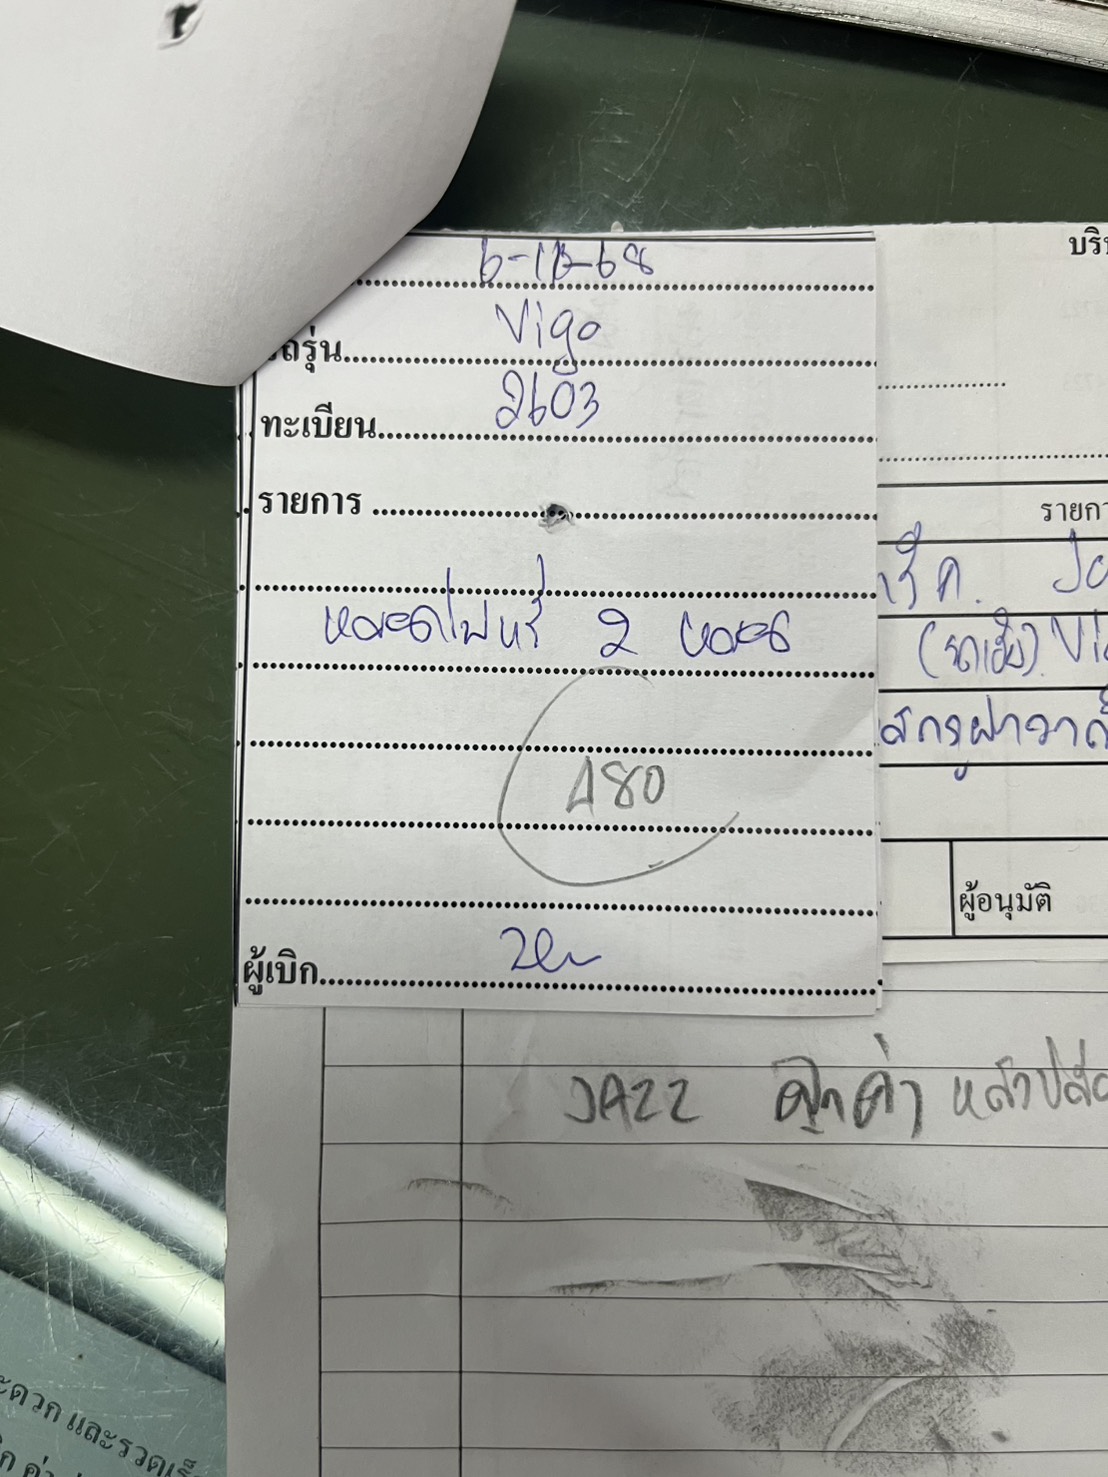 6-12-68
รถรุ่น Vigo
ทะเบียน 2603
รายการ
หลอดไฟหรี่ 2 หลอด
480
ผู้เบิก
บริษ
รายกา
(รถเฮีย) Vi
สกรูฝาวาล์
ผู้อนุมัติ
JAZZ ลูกค้า
ะดวก และรวดเร็